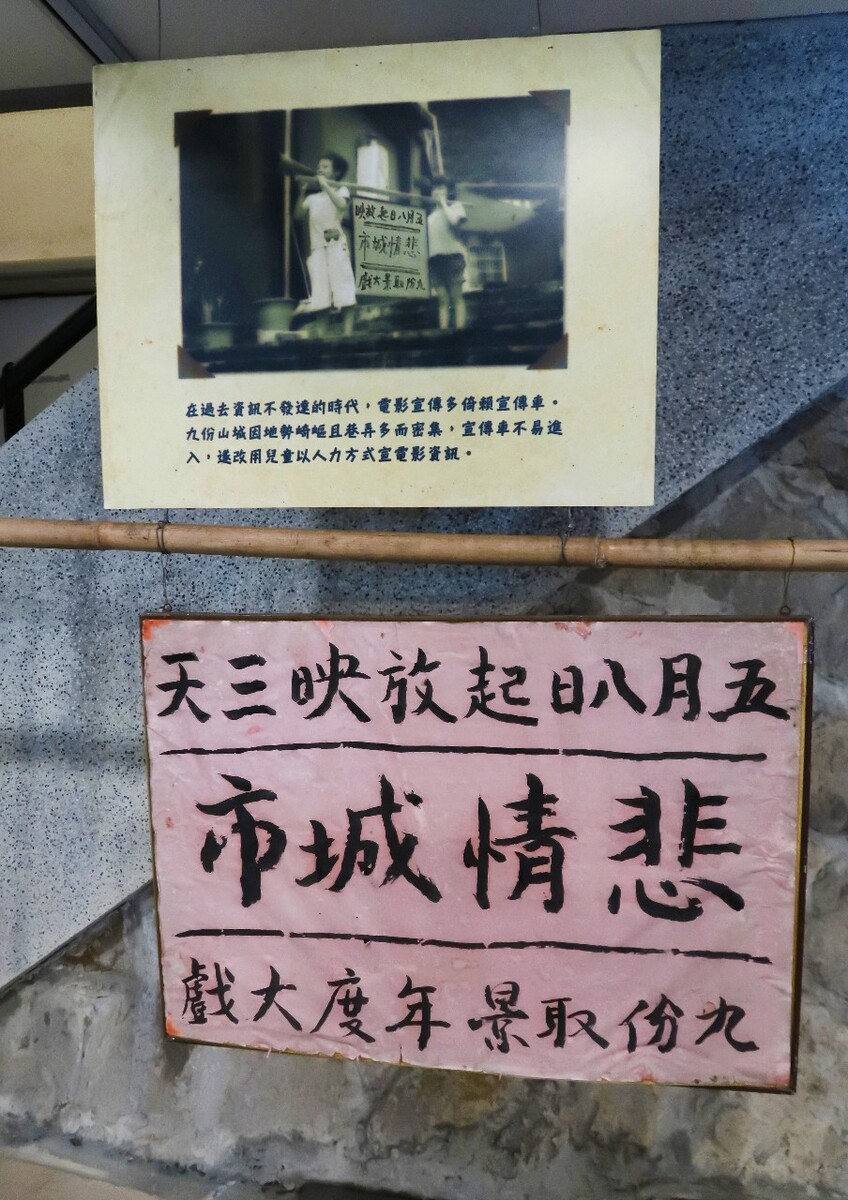 五月八日起放映
悲情城市
九份取景大戲
在過去資訊不發達的時代，電影宣傳多倚賴宣傳車。
九份山城因地勢崎嶇且巷弄多而密集，宣傳車不易進
入，遂改用兒童以人力方式宣電影資訊。
五月八日起放映三天
悲情城市
九份取景年度大戲